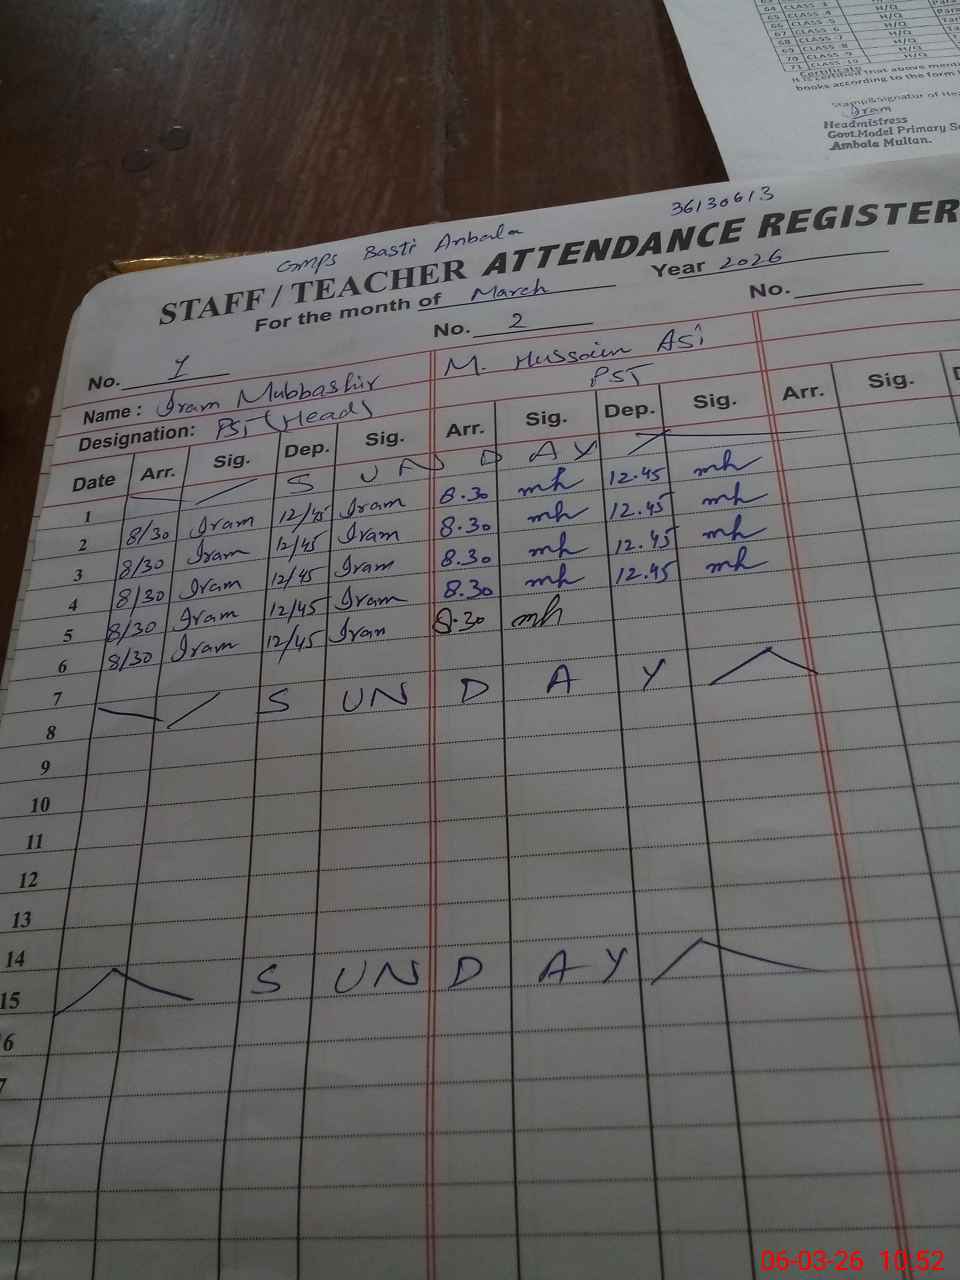 64 CLASS 3 H/Q
65 CLASS 4 H/Q
66 CLASS 5 H/Q
67 CLASS 6 H/Q
68 CLASS 7 H/Q
69 CLASS 8 H/Q
70 CLASS 9 H/Q
71 CLASS 10 H/Q
Certificate
It is certified that above
books according to the form
Stamp&Signatur of
Iram
Headmistress
Govt.Model Primary
Ambala Multan.
36130613
GMPS Basti Anbala
STAFF / TEACHER ATTENDANCE REGISTER
For the month of March Year 2026
No. 1 No. 2 No.
Name : Iram Mubbashir M. Hussain Asi
Designation: PST (Head) PST
Date Arr. Sig. Dep. Sig. Arr. Sig. Dep. Sig. Arr. Sig.
1 S U N D A Y
2 8/30 Iram 12/45 Iram 8.30 mh 12.45 mh
3 8/30 Iram 12/45 Iram 8.30 mh 12.45 mh
4 8/30 Iram 12/45 Iram 8.30 mh 12.45 mh
5 8/30 Iram 12/45 Iram 8.30 mh 12.45 mh
6 8/30 Iram 12/45 Iram 8.30 mh
7
8 S U N D A Y
9
10
11
12
13
14
15 S U N D A Y
6
7
06-03-26 10:52